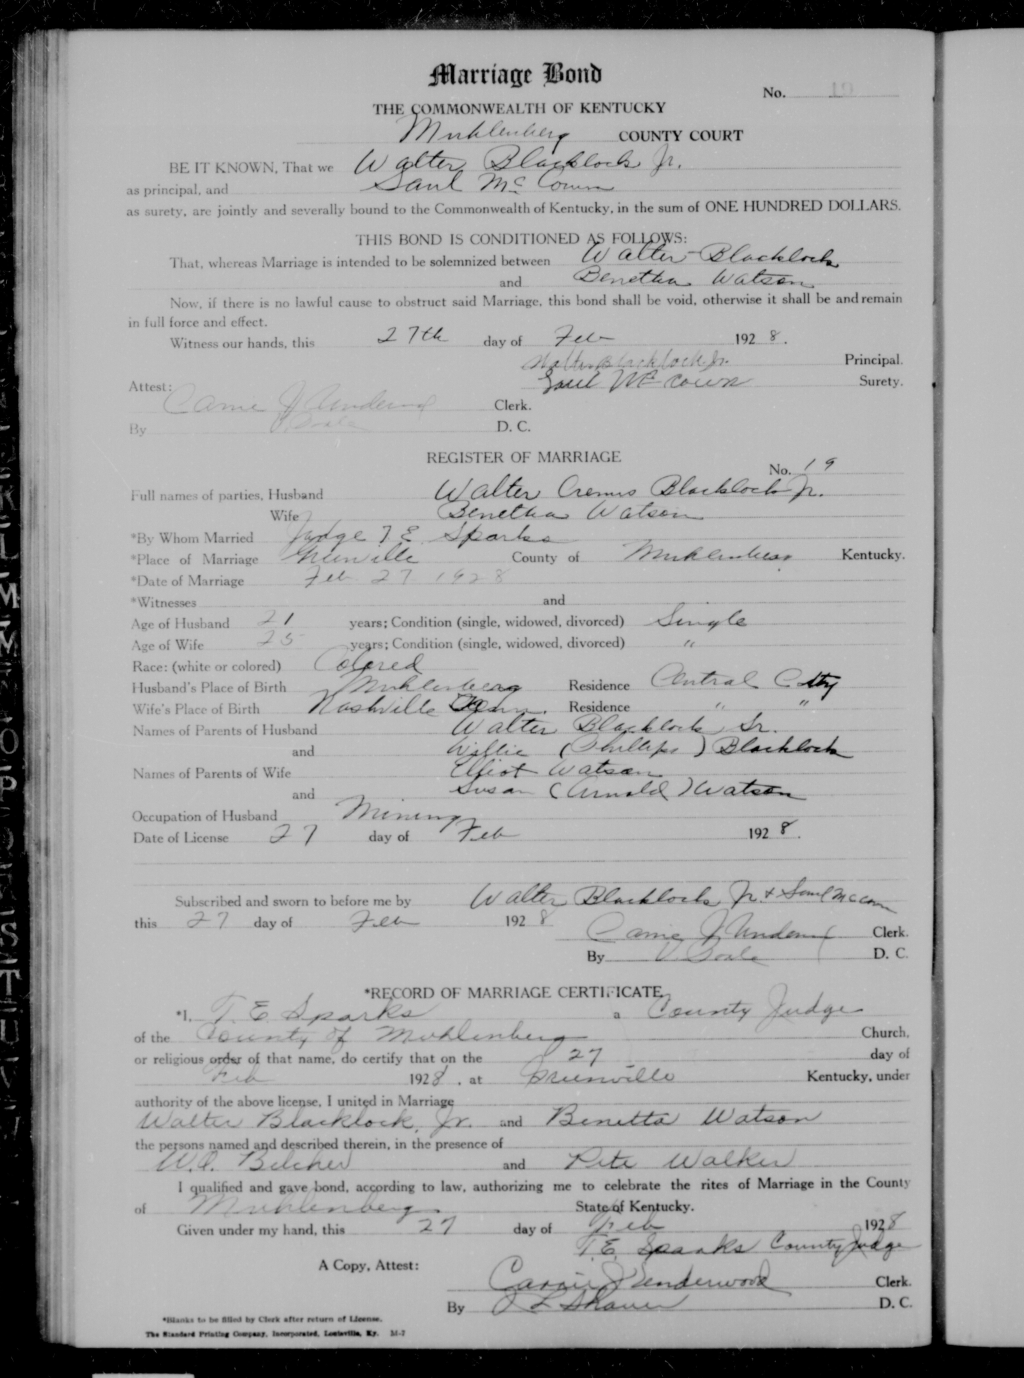 Marriage Bond
No. 19
THE COMMONWEALTH OF KENTUCKY
Muhlenberg COUNTY COURT
BE IT KNOWN, That we Walter Blacklock Jr.
as principal, and Saul McCown
as surety, are jointly and severally bound to the Commonwealth of Kentucky, in the sum of ONE HUNDRED DOLLARS.
THIS BOND IS CONDITIONED AS FOLLOWS:
That, whereas Marriage is intended to be solemnized between Walter Blacklock
and Benetha Watson
Now, if there is no lawful cause to obstruct said Marriage, this bond shall be void, otherwise it shall be and remain
in full force and effect.
Witness our hands, this 27th day of Feb 1928.
Walter Blacklock Jr. Principal.
Attest: Saul McCown Surety.
Carrie J Underwood Clerk.
By D. C.
REGISTER OF MARRIAGE
No. 19
Full names of parties, Husband Walter Blacklock Jr.
Wife Benetha Watson
*By Whom Married Judge T. E. Sparks
*Place of Marriage Greenville County of Muhlenberg Kentucky.
*Date of Marriage Feb 27 1928
*Witnesses and
Age of Husband 21 years; Condition (single, widowed, divorced) Single
Age of Wife 25 years; Condition (single, widowed, divorced) "
Race: (white or colored) Colored
Husband's Place of Birth Muhlenberg Residence Central City
Wife's Place of Birth Nashville Tenn. Residence " "
Names of Parents of Husband Walter Blacklock Sr.
and Willie (Phillips) Blacklock
Names of Parents of Wife Elliot Watson
and Susan (Arnold) Watson
Occupation of Husband Mining
Date of License 27 day of Feb 1928.
Subscribed and sworn to before me by Walter Blacklock Jr. + Saul McCown
this 27 day of Feb 1928
Carrie J Underwood Clerk.
By D. C.
*RECORD OF MARRIAGE CERTIFICATE
*I, T. E. Sparks a County Judge
of the County of Muhlenberg Church,
or religious order of that name, do certify that on the 27 day of
Feb 1928, at Greenville Kentucky, under
authority of the above license, I united in Marriage
Walter Blacklock, Jr. and Binetta Watson
the persons named and described therein, in the presence of
Belcher and Pete Walker
I qualified and gave bond, according to law, authorizing me to celebrate the rites of Marriage in the County
of Muhlenberg State of Kentucky.
Given under my hand, this 27 day of Feb 1928
T. E. Sparks County Judge
A Copy, Attest:
Carrie J Underwood Clerk.
By Shaver D. C.
*Blanks to be filled by Clerk after return of License.
The Standard Printing Company, Incorporated, Louisville, Ky. M-7